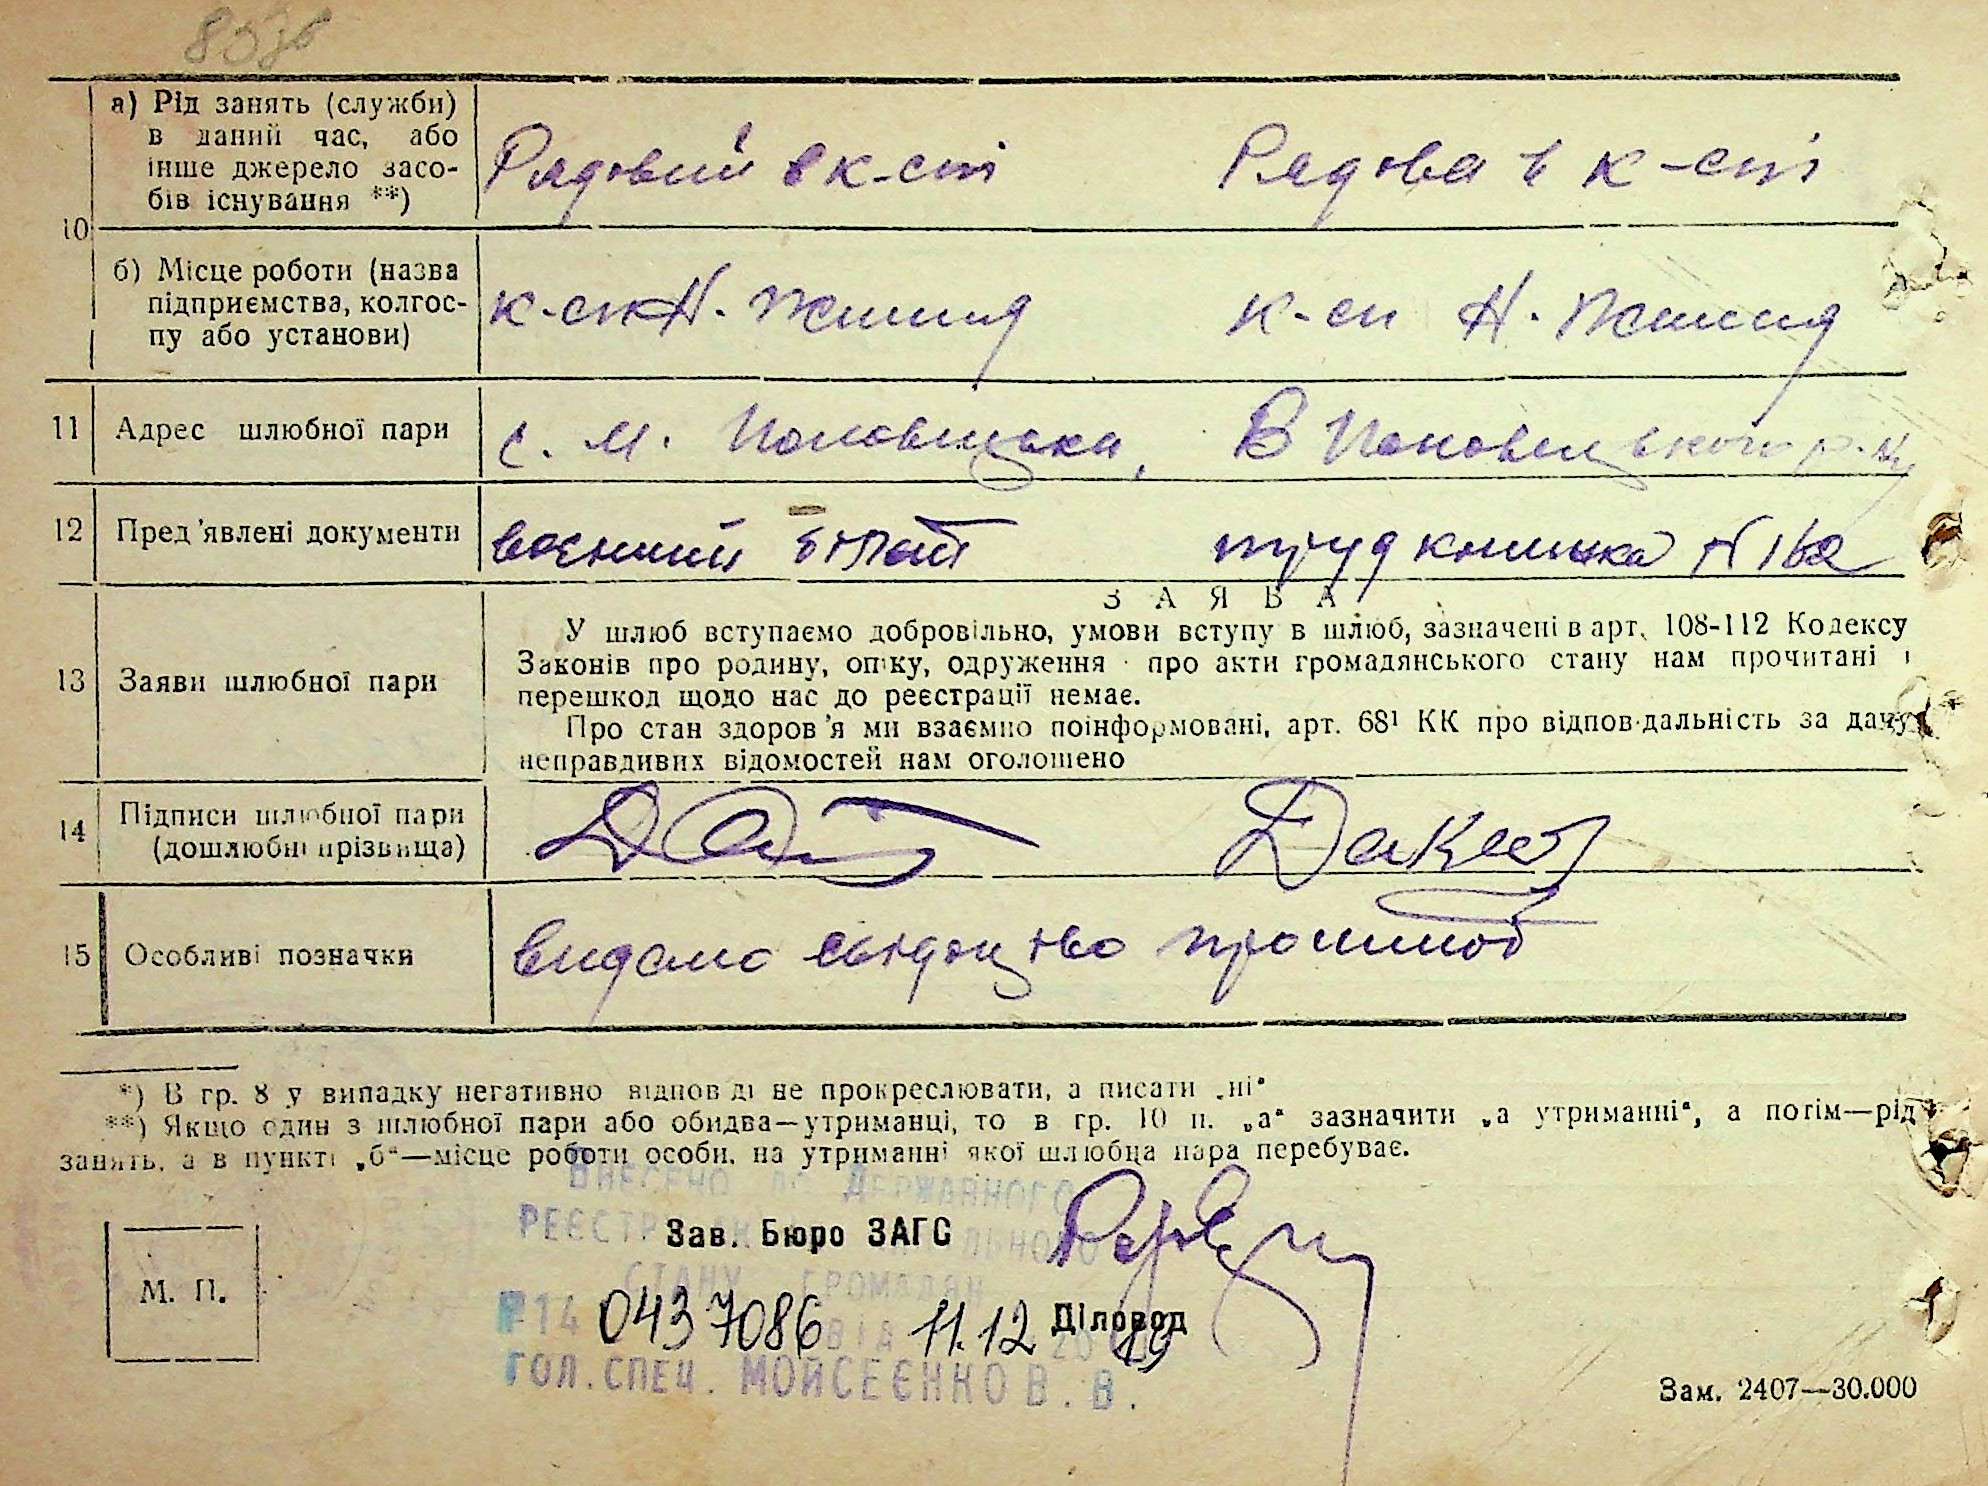 10
а) Рід занять (служби)
в даний час, або
інше джерело засо-
бів існування **)
Рядовий в к-сті
Рядова в к-сті
б) Місце роботи (назва
підприємства, колгос-
пу або установи)
к-сп Н. Життя
к-сп Н. Життя
11 Адрес шлюбної пари
с. М. Половецька, В Половецького р-ну
12 Пред'явлені документи
воєнний білет
труд книжка N 162
13 Заяви шлюбної пари
ЗАЯВА
У шлюб вступаємо добровільно, умови вступу в шлюб, зазначені в арт. 108-112 Кодексу
Законів про родину, опіку, одруження про акти громадянського стану нам прочитані і
перешкод щодо нас до реєстрації немає.
Про стан здоров'я ми взаємно поінформовані, арт. 68¹ КК про відповідальність за дачу
неправдивих відомостей нам оголошено
14 Підписи шлюбної пари
(дошлюбні прізвища)
15 Особливі позначки
видано свідоцтво про шлюб
*) В гр. 8 у випадку негативно відповіді не прокреслювати, а писати „ні"
**) Якщо один з шлюбної пари або обидва—утриманці, то в гр. 10 п. „а" зазначити „а утриманні", а потім—рід
занять, а в пункті „б"—місце роботи особи, на утриманні якої шлюбна пара перебуває.
ВНЕСЕНО ДО ДЕРЖАВНОГО
РЕЄСТРУ АКТІВ ЦИВІЛЬНОГО
СТАНУ ГРОМАДЯН
Зав. Бюро ЗАГС
М. П.
№14 0437086 ВІД 11.12 2019
Діловод
ГОЛ.СПЕЦ. МОЙСЕЄНКО В. В.
Зам. 2407—30.000